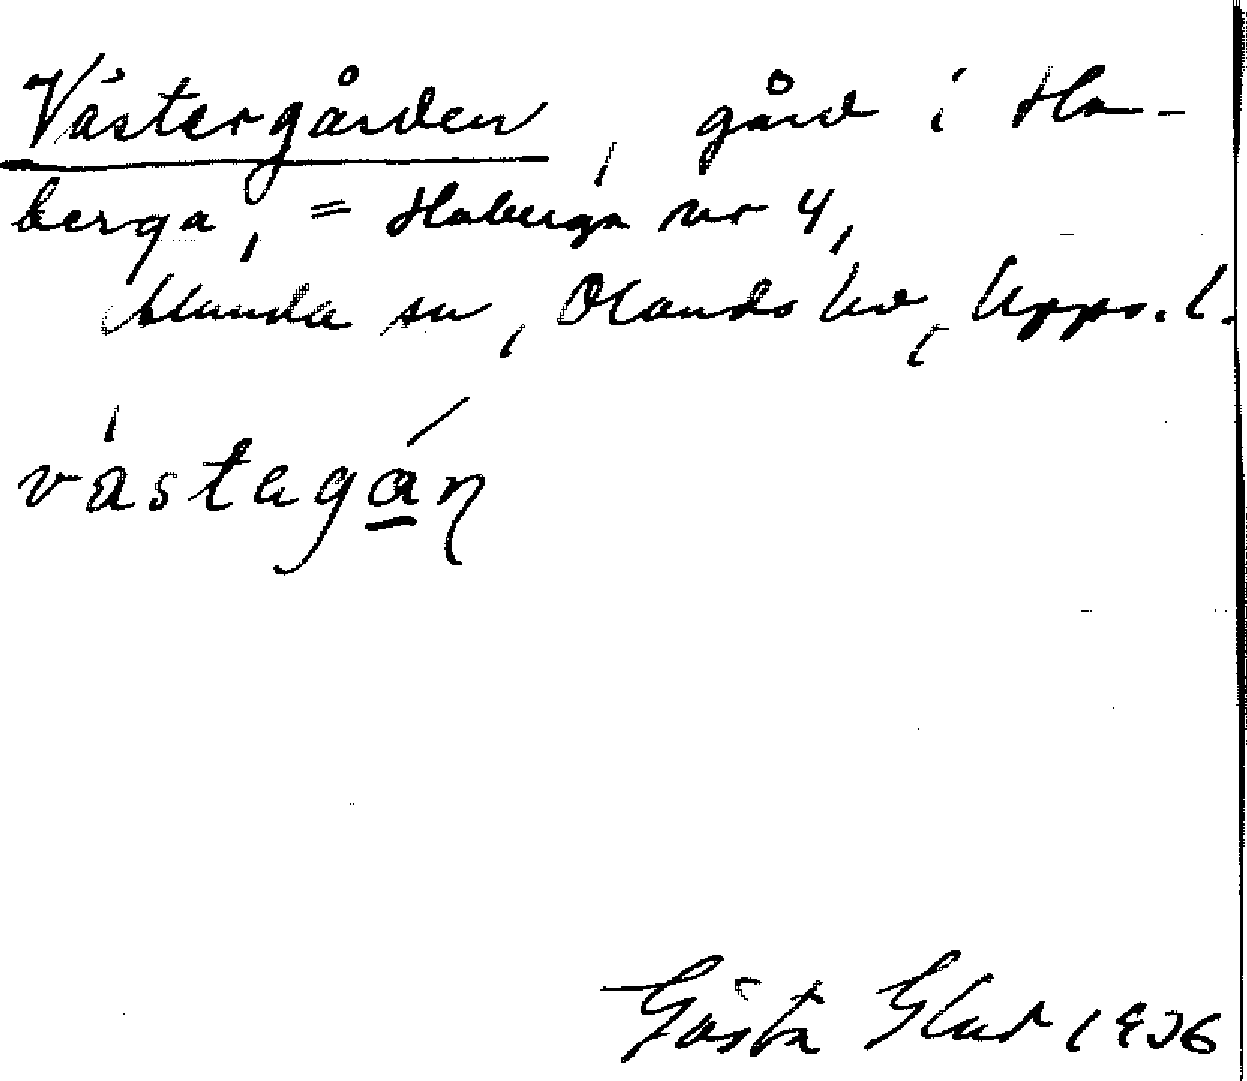 Västergården, gård i Ha-
berga, = Haberga nr 4,
Alunda sn, Olands hd, Upps. l.
västagán
Gösta